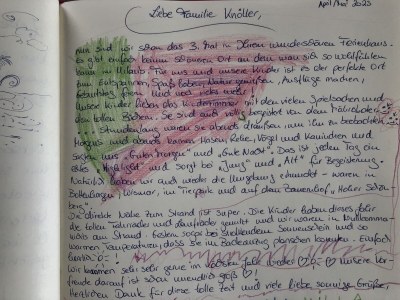 April/Mai 2023
Liebe Familie Knöller,
nun sind wir schon das 3. Mal in Ihrem wunderschönen Ferienhaus.
es gibt einfach kaum schönere Ort an dem man sich so wohlfühlen
kann im Urlaub. Für uns und unsere Kinder ist es der perfekte Ort
zum Entspannen, Spaß haben, Natur genießen, Ausflüge machen,
Geburtstag feiern und noch vieles mehr.
Unsere Kinder lieben das Kinderzimmer mit den vielen Spielsachen und
den tollen Büchern. Sie sind auch völlig begeistert von dem
Stundenlang waren sie abends draußen um ihn zu beobachten.
Morgens und abends kamen Hasen, Rehe, Vögel und Kaninchen und
sagten uns "Guten Morgen" und "Gute Nacht". Das ist jeden Tag ein
tolles Highlight und sorgt bei "Jung" und "Alt" für Begeisterung.
Natürlich haben wir auch wieder die Umgebung erkundet - waren in
Boltenhagen, Wismar, im Tierpark und auf dem Bauernhof "Hoher Schön-
berg".
Die direkte Nähe zum Strand ist super. Die Kinder haben dieses Jahr
die tollen Fahrräder und Laufräder genutzt und wir waren in
am Strand. Gestern sorgte bei strahlendem Sonnenschein und so
warmen Temperaturen, dass sie im Badeanzug planschen konnten. Einfach
Wir kommen sehr sehr gerne im nächsten Jahr wieder ♡☺♡ unsere Vor-
freude darauf ist schon unendlich groß ♡!
Herzlichen Dank für diese tolle Zeit und viele liebe sonnige Grüße,